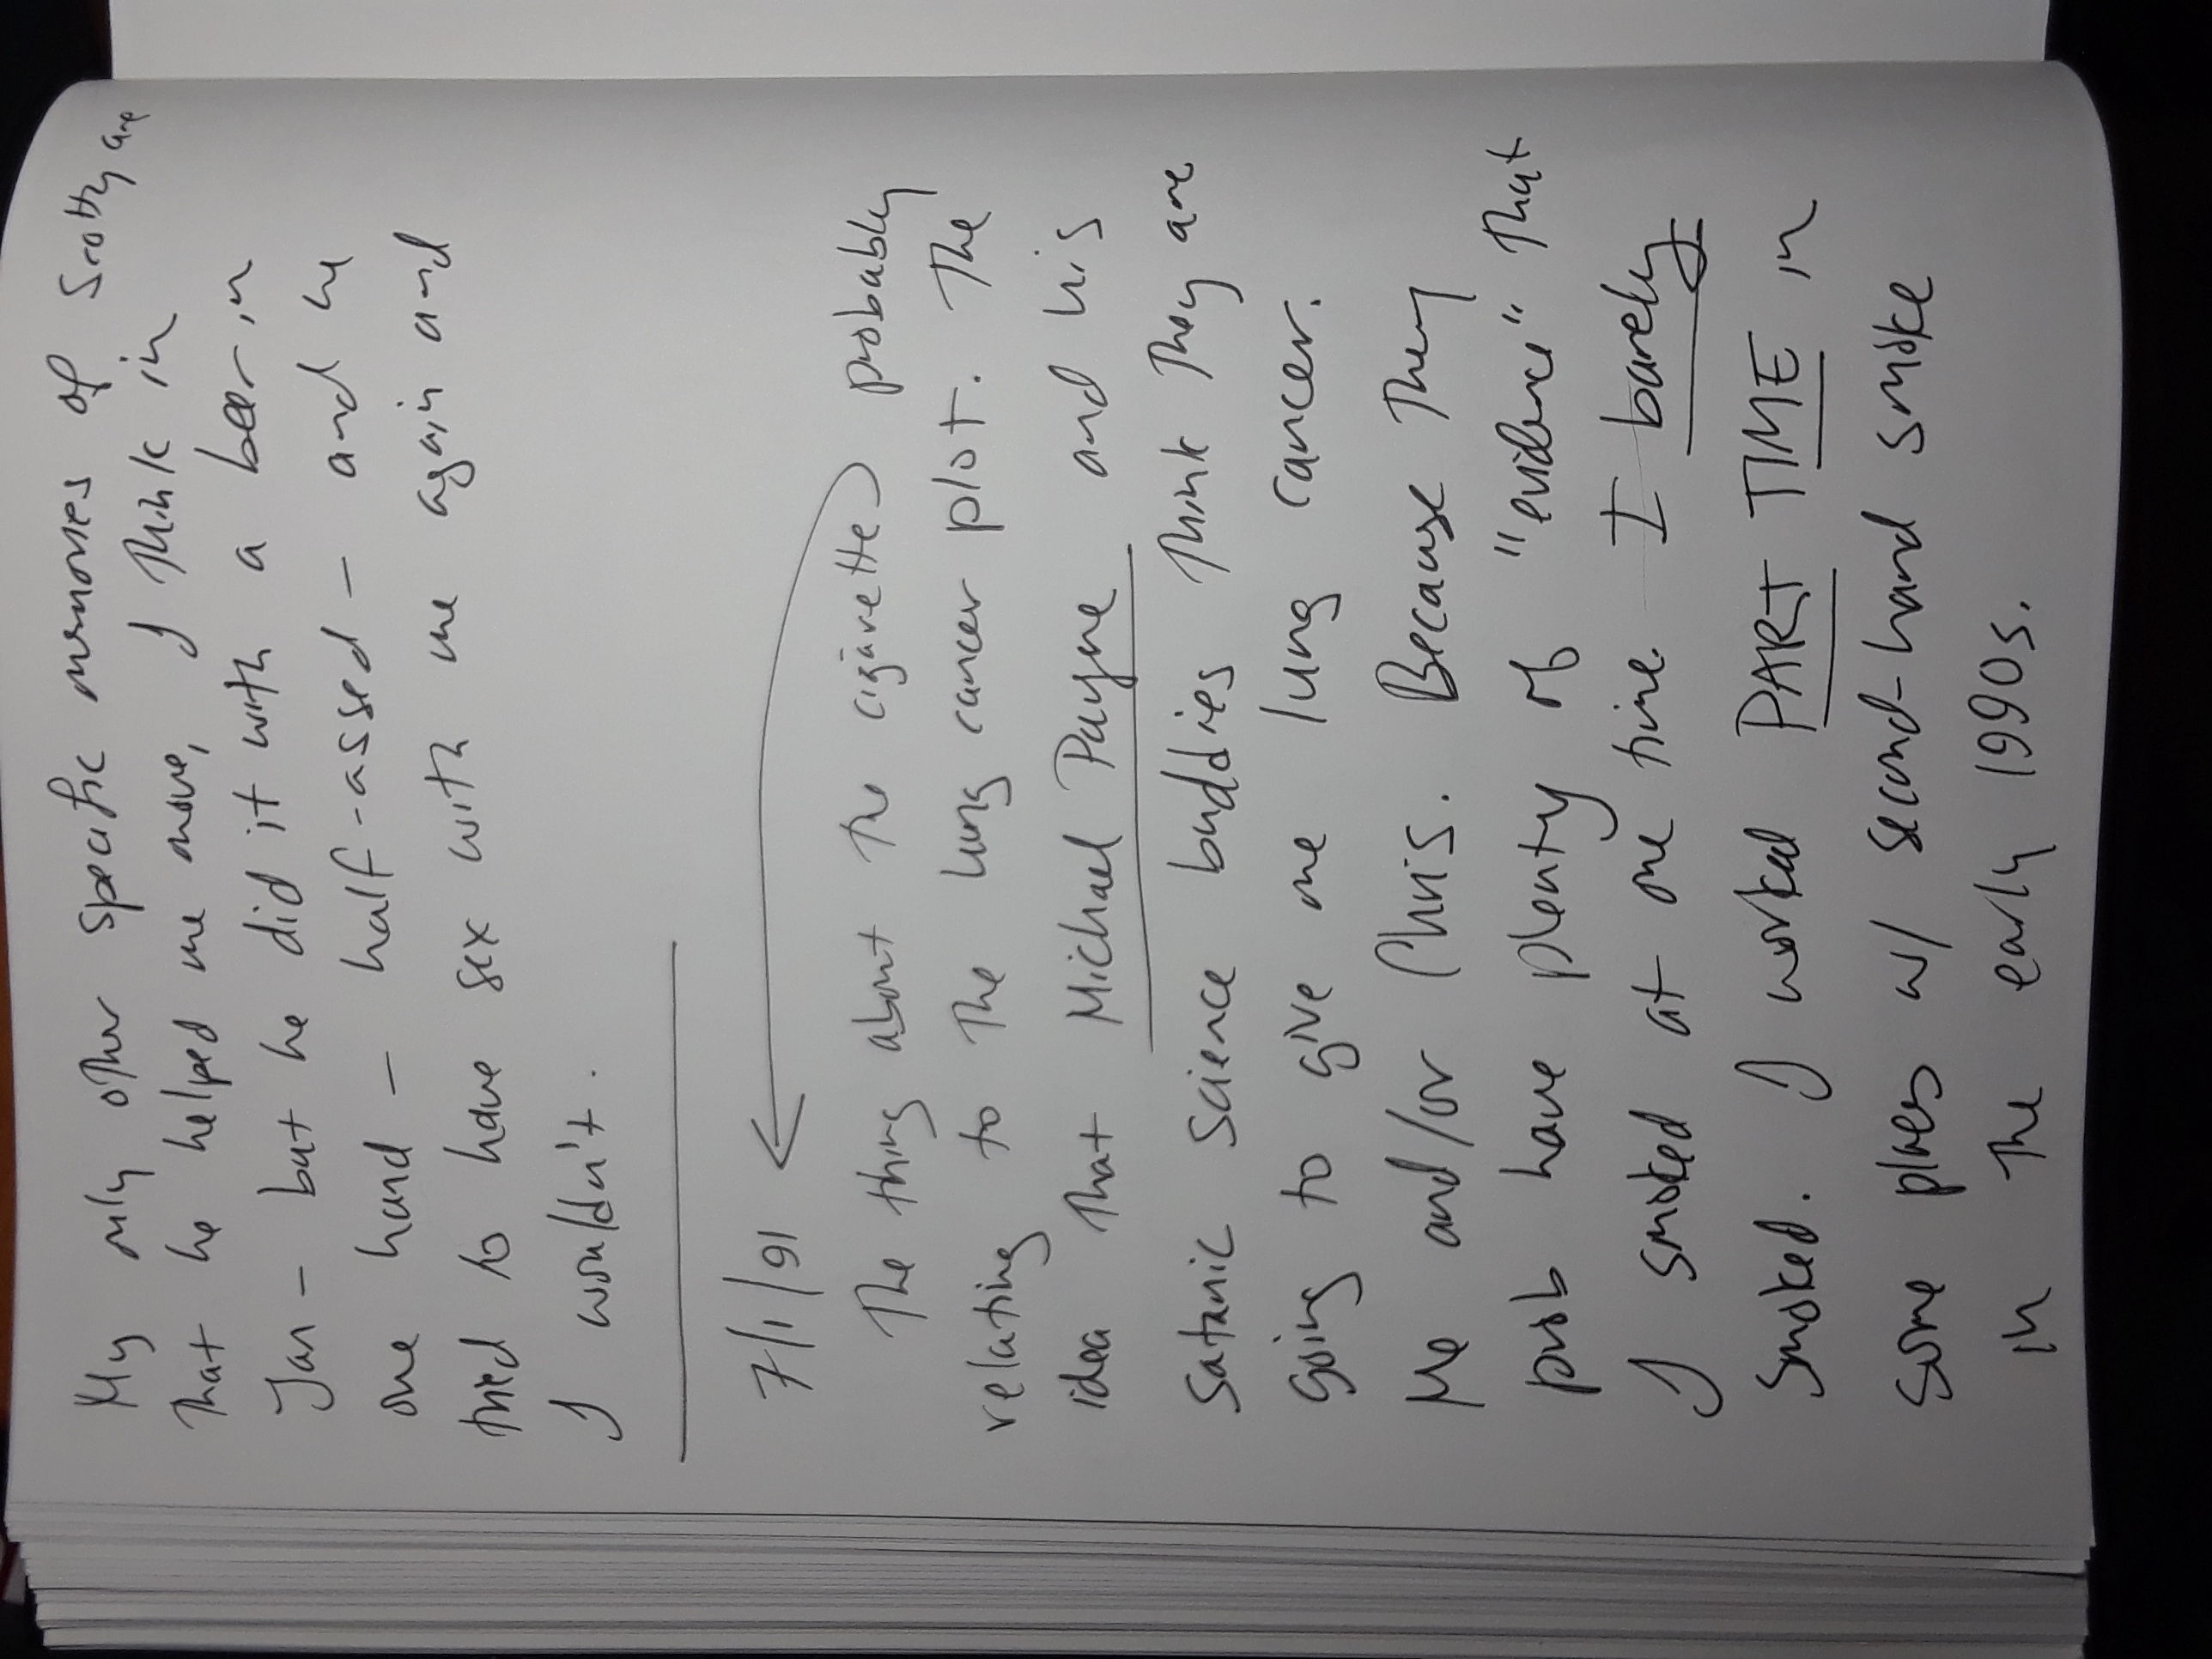 My only other specific memories of Scotty are
that he helped me move, I think in
Jan - but he did it with a beer in
one hand - half-assed - and he
tried to have sex with me again and
I wouldn't.
7/1/91
The thing about the cigarettes probably
relating to the lung cancer plot. The
idea that Michael Payne and his
Satanic Science buddies think they are
going to give me lung cancer.
Me and/or Chris. Because they
prob have plenty of "evidence" that
I smoked at one time. I barely
smoked. I worked PART TIME in
some places w/ second-hand smoke
in the early 1990s.